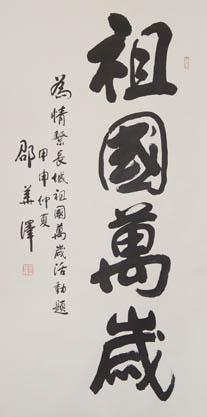 祖國萬歲
為情繫長城祖國萬歲活動題
甲申仲夏
邵華澤